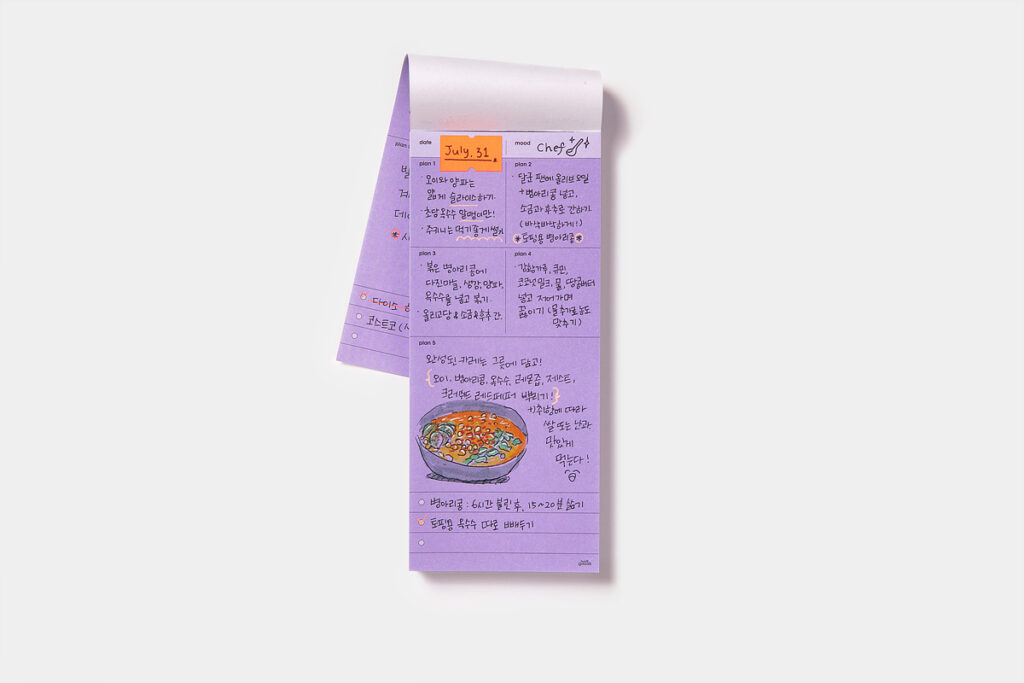 date
July. 31
mood
Chef
plan 1
· 오이와 양파는
얇게 슬라이스하기.
· 초당옥수수 알맹이만!
· 주키니는 먹기좋게썰기
plan 2
· 달군 팬에 올리브오일
+병아리콩 넣고,
소금과 후추로 간하기.
(바싹바싹하게!)
*토핑용 병아리콩*
plan 3
· 볶은 병아리콩에
다진마늘, 생강, 양파,
옥수수를 넣고 볶기.
· 올리고당 & 소금&후추 간.
plan 4
· 강황가루, 큐민,
코코넛밀크, 물, 땅콩버터
넣고 저어가며
끓이기 (물 추가로 농도
맞추기)
plan 5
완성된 카레는 그릇에 담고!
{오이, 병아리콩, 옥수수, 레몬즙, 제스트,
크러쉬드 레드페퍼 뿌리기!}
+)취향에 따라
쌀 또는 난과
맛있게
먹는다!
병아리콩 : 6시간 불린 후, 15~20분 삶기
토핑용 옥수수 따로 빼두기
plan
데이
다이소
코스트코 (